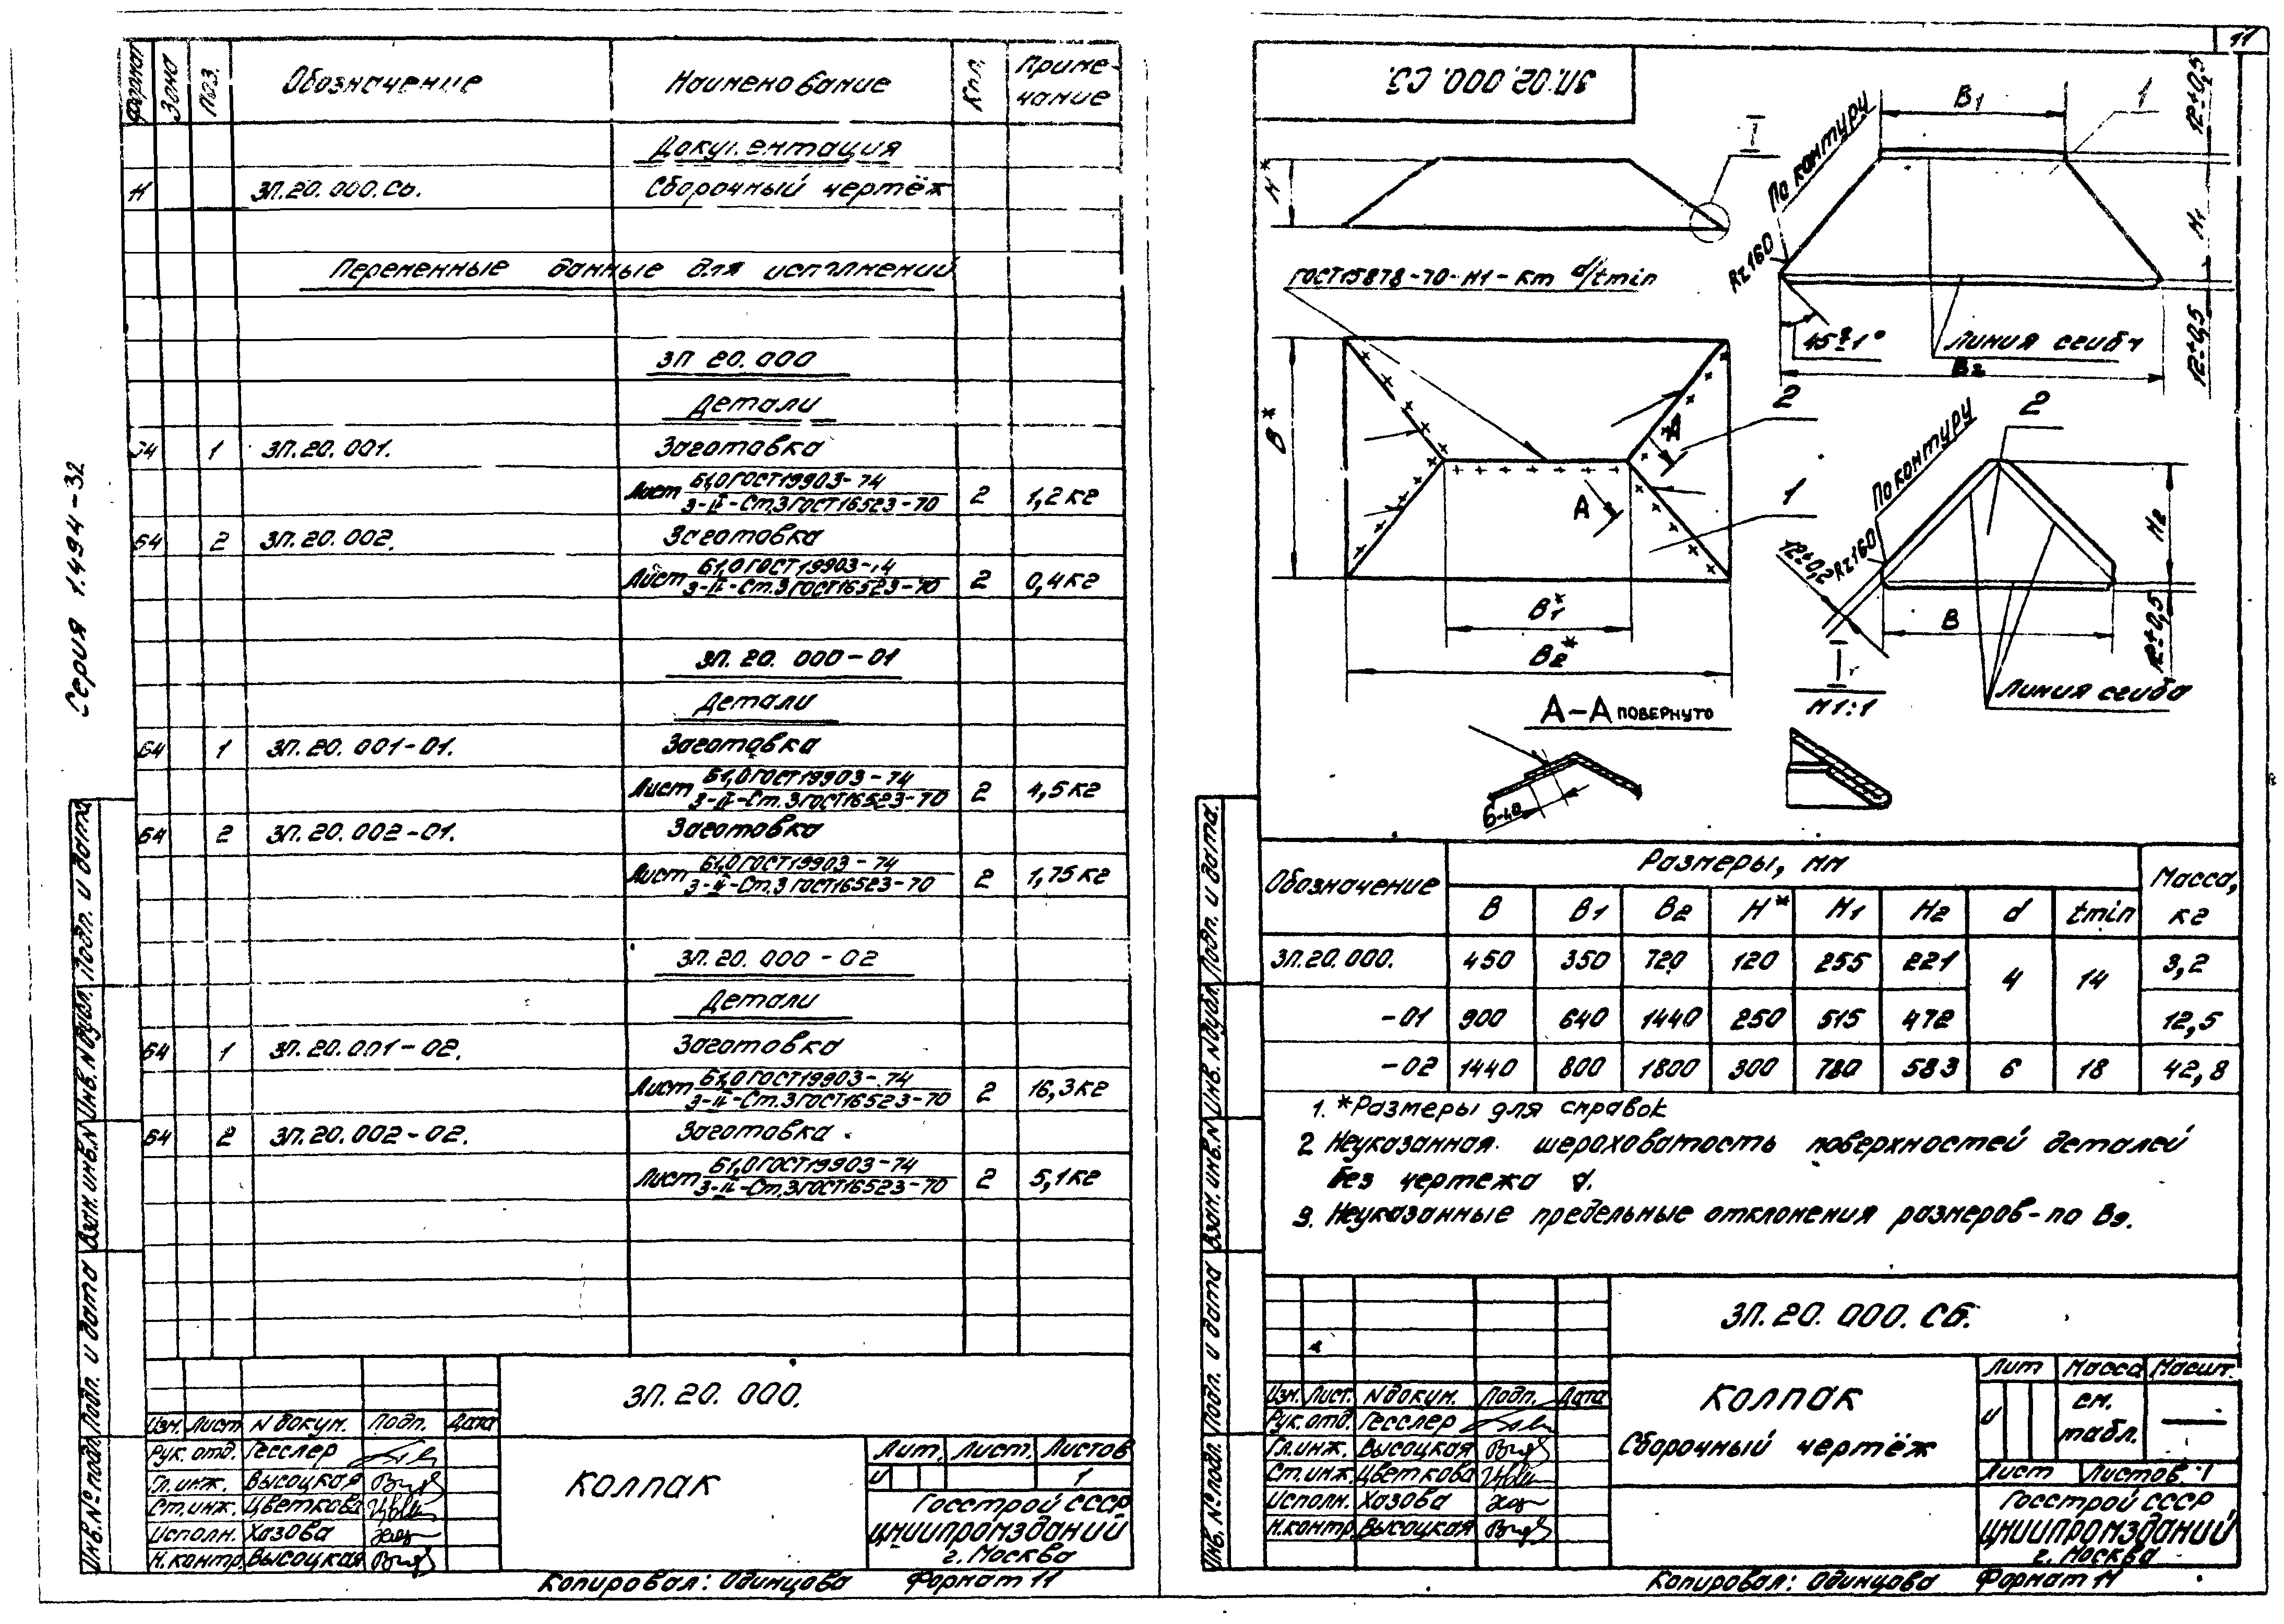 Серия 1.494-32
Формат Зона Поз. Обозначение Наименование Кол. Приме-
чание
Документация
11 ЗП.20.000.Сб. Сборочный чертёж
Переменные данные для исполнений
ЗП 20.000
Детали
64 1 ЗП.20.001. Заготовка
Лист Б1,0 ГОСТ19903-74 2 1,2 кг
3-II-Ст.3 ГОСТ16523-70
64 2 ЗП.20.002. Заготовка
Лист Б1,0 ГОСТ19903-74 2 0,4 кг
3-II-Ст.3 ГОСТ16523-70
ЗП. 20. 000-01
Детали
64 1 ЗП. 20. 001-01. Заготовка
Лист Б1,0 ГОСТ19903-74 2 4,5 кг
3-II-Ст.3 ГОСТ16523-70
64 2 ЗП. 20. 002-01. Заготовка
Лист Б1,0 ГОСТ19903-74 2 1,75 кг
3-II-Ст.3 ГОСТ16523-70
ЗП. 20. 000-02
Детали
64 1 ЗП. 20.001-02. Заготовка
Лист Б1,0 ГОСТ19903-74 2 16,3 кг
3-II-Ст.3 ГОСТ16523-70
64 2 ЗП. 20.002-02. Заготовка
Лист Б1,0 ГОСТ19903-74 2 5,1 кг
3-II-Ст.3 ГОСТ16523-70
Инв. № подл. Подп. и дата Взам. инв. N Инв. N дубл. Подп. и дата
ЗП. 20. 000.
Изм. Лист N докум. Подп. Дата
Рук. отд. Гесслер
Гл. инж. Высоцкая
Ст. инж. Цветкова
Исполн. Хазова
Н. контр. Высоцкая
КОЛПАК
Лит. Лист. Листов
И 1
Госстрой СССР
ЦНИИПРОМЗДАНИЙ
г. Москва
Копировал: Одинцова Формат 11
11
ЗП.02.000.СЗ.
H*
I
ГОСТ15878-70-Н1-Кт d/tmin
B*
A
A
2
1
B1*
B2*
B1
1
По контуру
Rz160
12±0,5
H1
12±0,5
45°±1°
Линия сгиба
B2
2
По контуру
Rz160
12±0,2
H2
12±0,5
B
Линия сгиба
А-А ПОВЕРНУТО
I
М1:1
Обозначение Размеры, мм Масса,
кг
B B1 B2 H* H1 H2 d tmin
ЗП.20.000. 450 350 720 120 255 221 4 14 3,2
-01 900 640 1440 250 515 472 12,5
-02 1440 800 1800 300 780 583 6 18 42,8
1. *Размеры для справок
2 Неуказанная шероховатость поверхностей деталей
без чертежа
3. Неуказанные предельные отклонения размеров-по В9.
Инв. № подл. Подп. и дата Взам. инв. N Инв. N дубл. Подп. и дата.
ЗП. 20. 000. СБ.
Изм. Лист. N докум. Подп. Дата
Рук. отд. Гесслер
Гл. инж. Высоцкая
Ст. инж. Цветкова
Исполн. Хазова
Н. контр Высоцкая
КОЛПАК
Сборочный чертёж
Лит Масса Масшт.
И см.
табл.
Лист Листов 1
Госстрой СССР
ЦНИИПРОМЗДАНИЙ
г. Москва
Копировал: Одинцова Формат 11